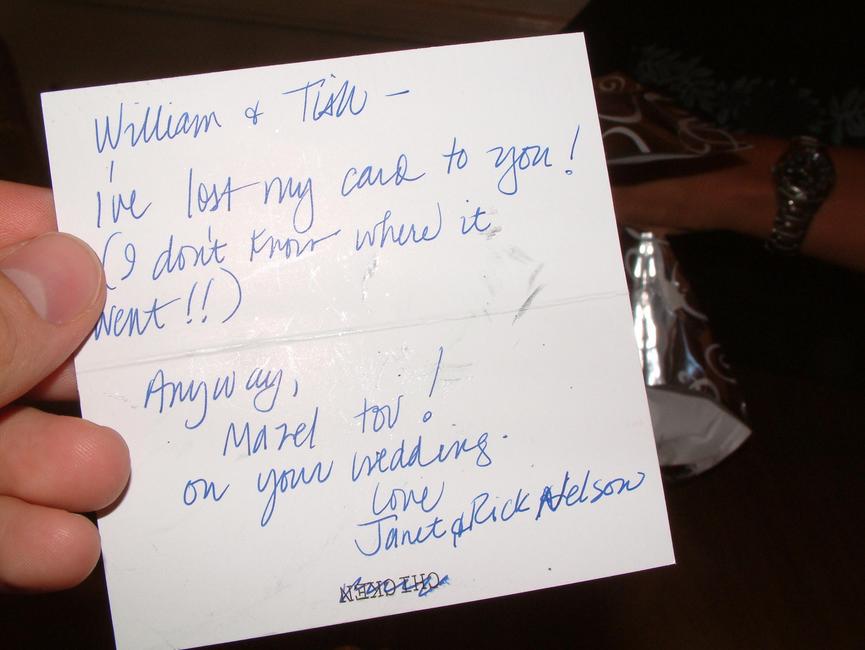 William & Tish -
I've lost my card to you!
(I don't know where it
went!!)
Anyway,
Mazel tov!
on your wedding.
Love
Janet & Rick Nelson
CHICKEN